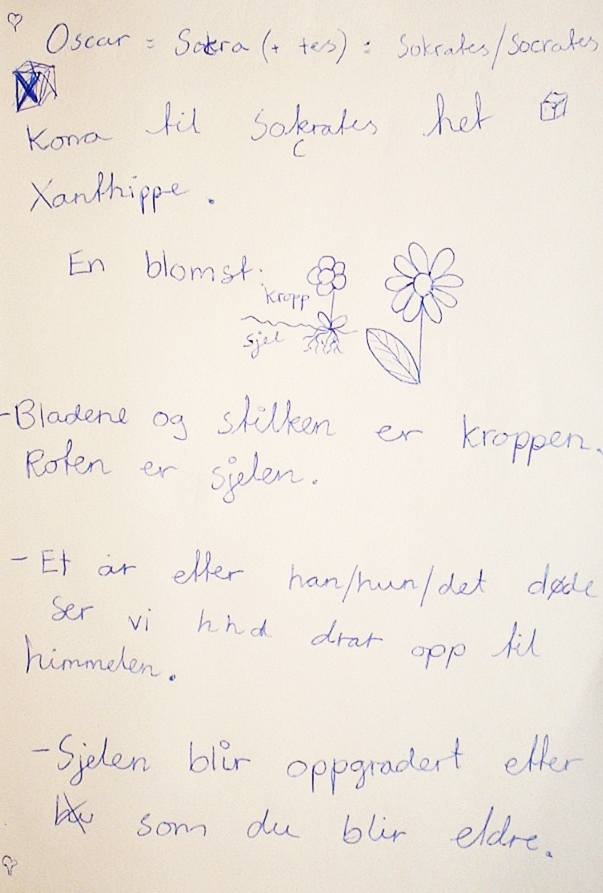 Oscar = Sokra (+ tes) = Sokrates/Socrates
Kona til Sokrates het
c
Xanthippe.
En blomst:
kropp
sjel
-Bladene og stilken er kroppen.
Roten er sjelen.
- Et år etter han/hun/det døde
ser vi hhd drar opp til
himmelen.
- Sjelen blir oppgradert etter
som du blir eldre.